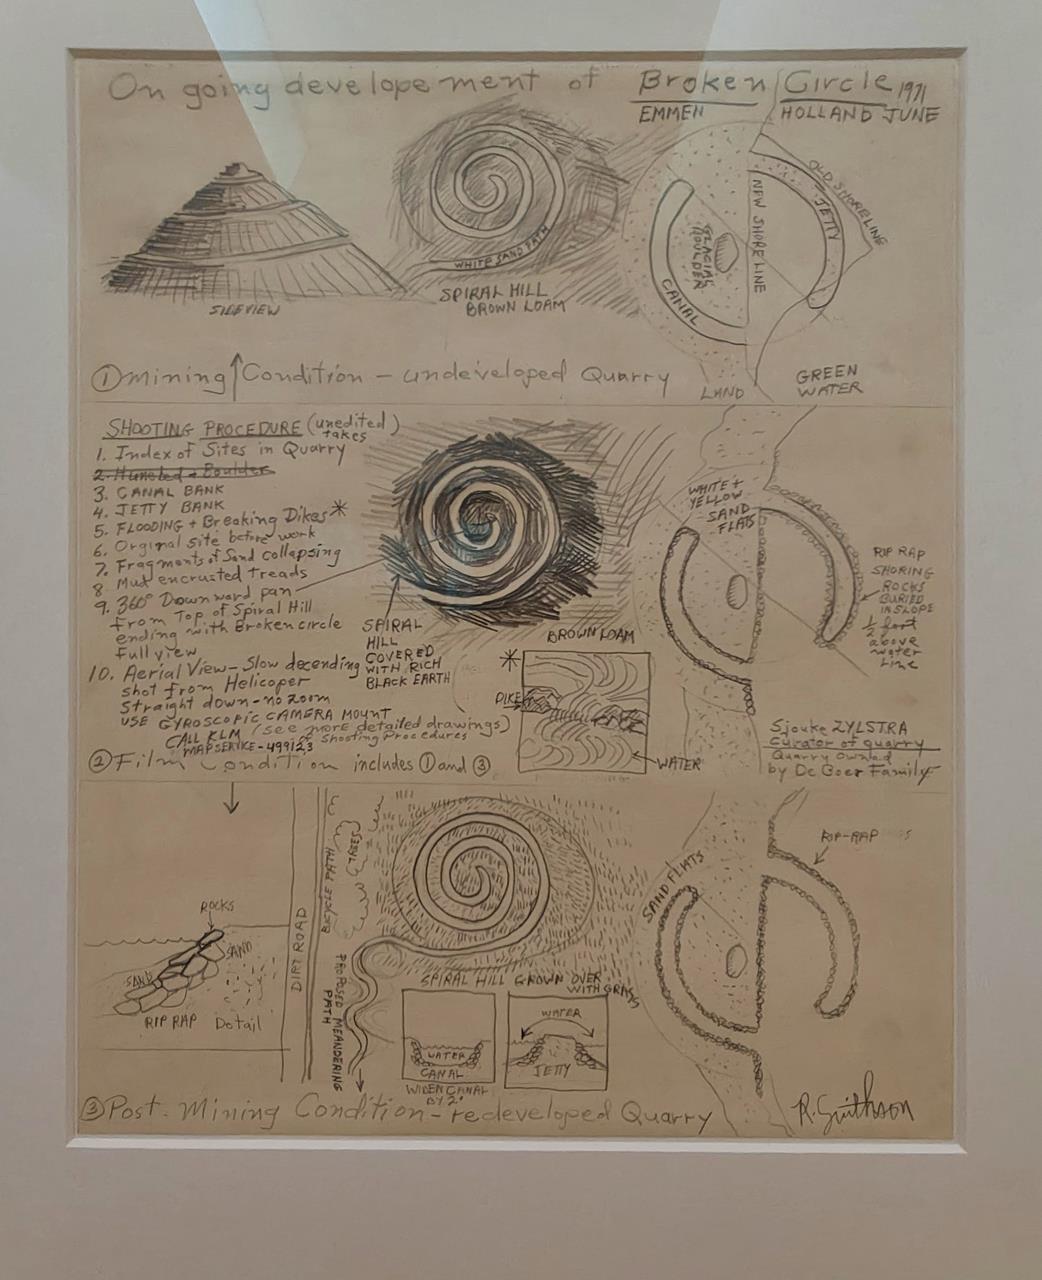 On going developement of Broken Circle 1971
EMMEN HOLLAND JUNE
SIDEVIEW
WHITE SAND PATH
SPIRAL HILL
BROWN LOAM
GLACIAL
BOULDER
CANAL
NEW SHORE LINE
JETTY
OLD SHORELINE
LAND
GREEN
WATER
① Mining Condition - undeveloped Quarry
SHOOTING PROCEDURE (unedited takes)
1. Index of Sites in Quarry
3. CANAL BANK
4. JETTY BANK
5. FLOODING + Breaking Dikes *
6. Orginal site before work
7. Fragments of Sand collapsing
8 Mud encrusted treads
9. 360° Downward pan
from Top of Spiral Hill
ending with Broken circle
full view
10. Aerial View - Slow decending
shot from Helicoper
straight down - no zoom
USE GYROSCOPIC CAMERA MOUNT
CALL KLM (see more detailed drawings)
of Shooting Procedures
499123
SPIRAL
HILL
COVERED
WITH RICH
BLACK EARTH
BROWN LOAM
*
DIKE
WATER
WHITE +
YELLOW
SAND
FLATS
RIP RAP
SHORING
ROCKS
BURIED
IN SLOPE
1/2 foot
above
water
Line
Sjouke ZYLSTRA
curator of quarry
Quarry owned
by De Boer Family
② Film Condition includes ① and ③
ROCKS
SAND
SAND
RIP RAP Detail
DIRT ROAD
BICYCLE PATH
TREES
PROPOSED MEANDERING
PATH
SPIRAL HILL GROWN OVER
WITH GRASS
WATER
CANAL
WIDEN CANAL
BY 2'
WATER
JETTY
SAND FLATS
RIP-RAP
③ Post-Mining Condition - redeveloped Quarry
R. Smithson